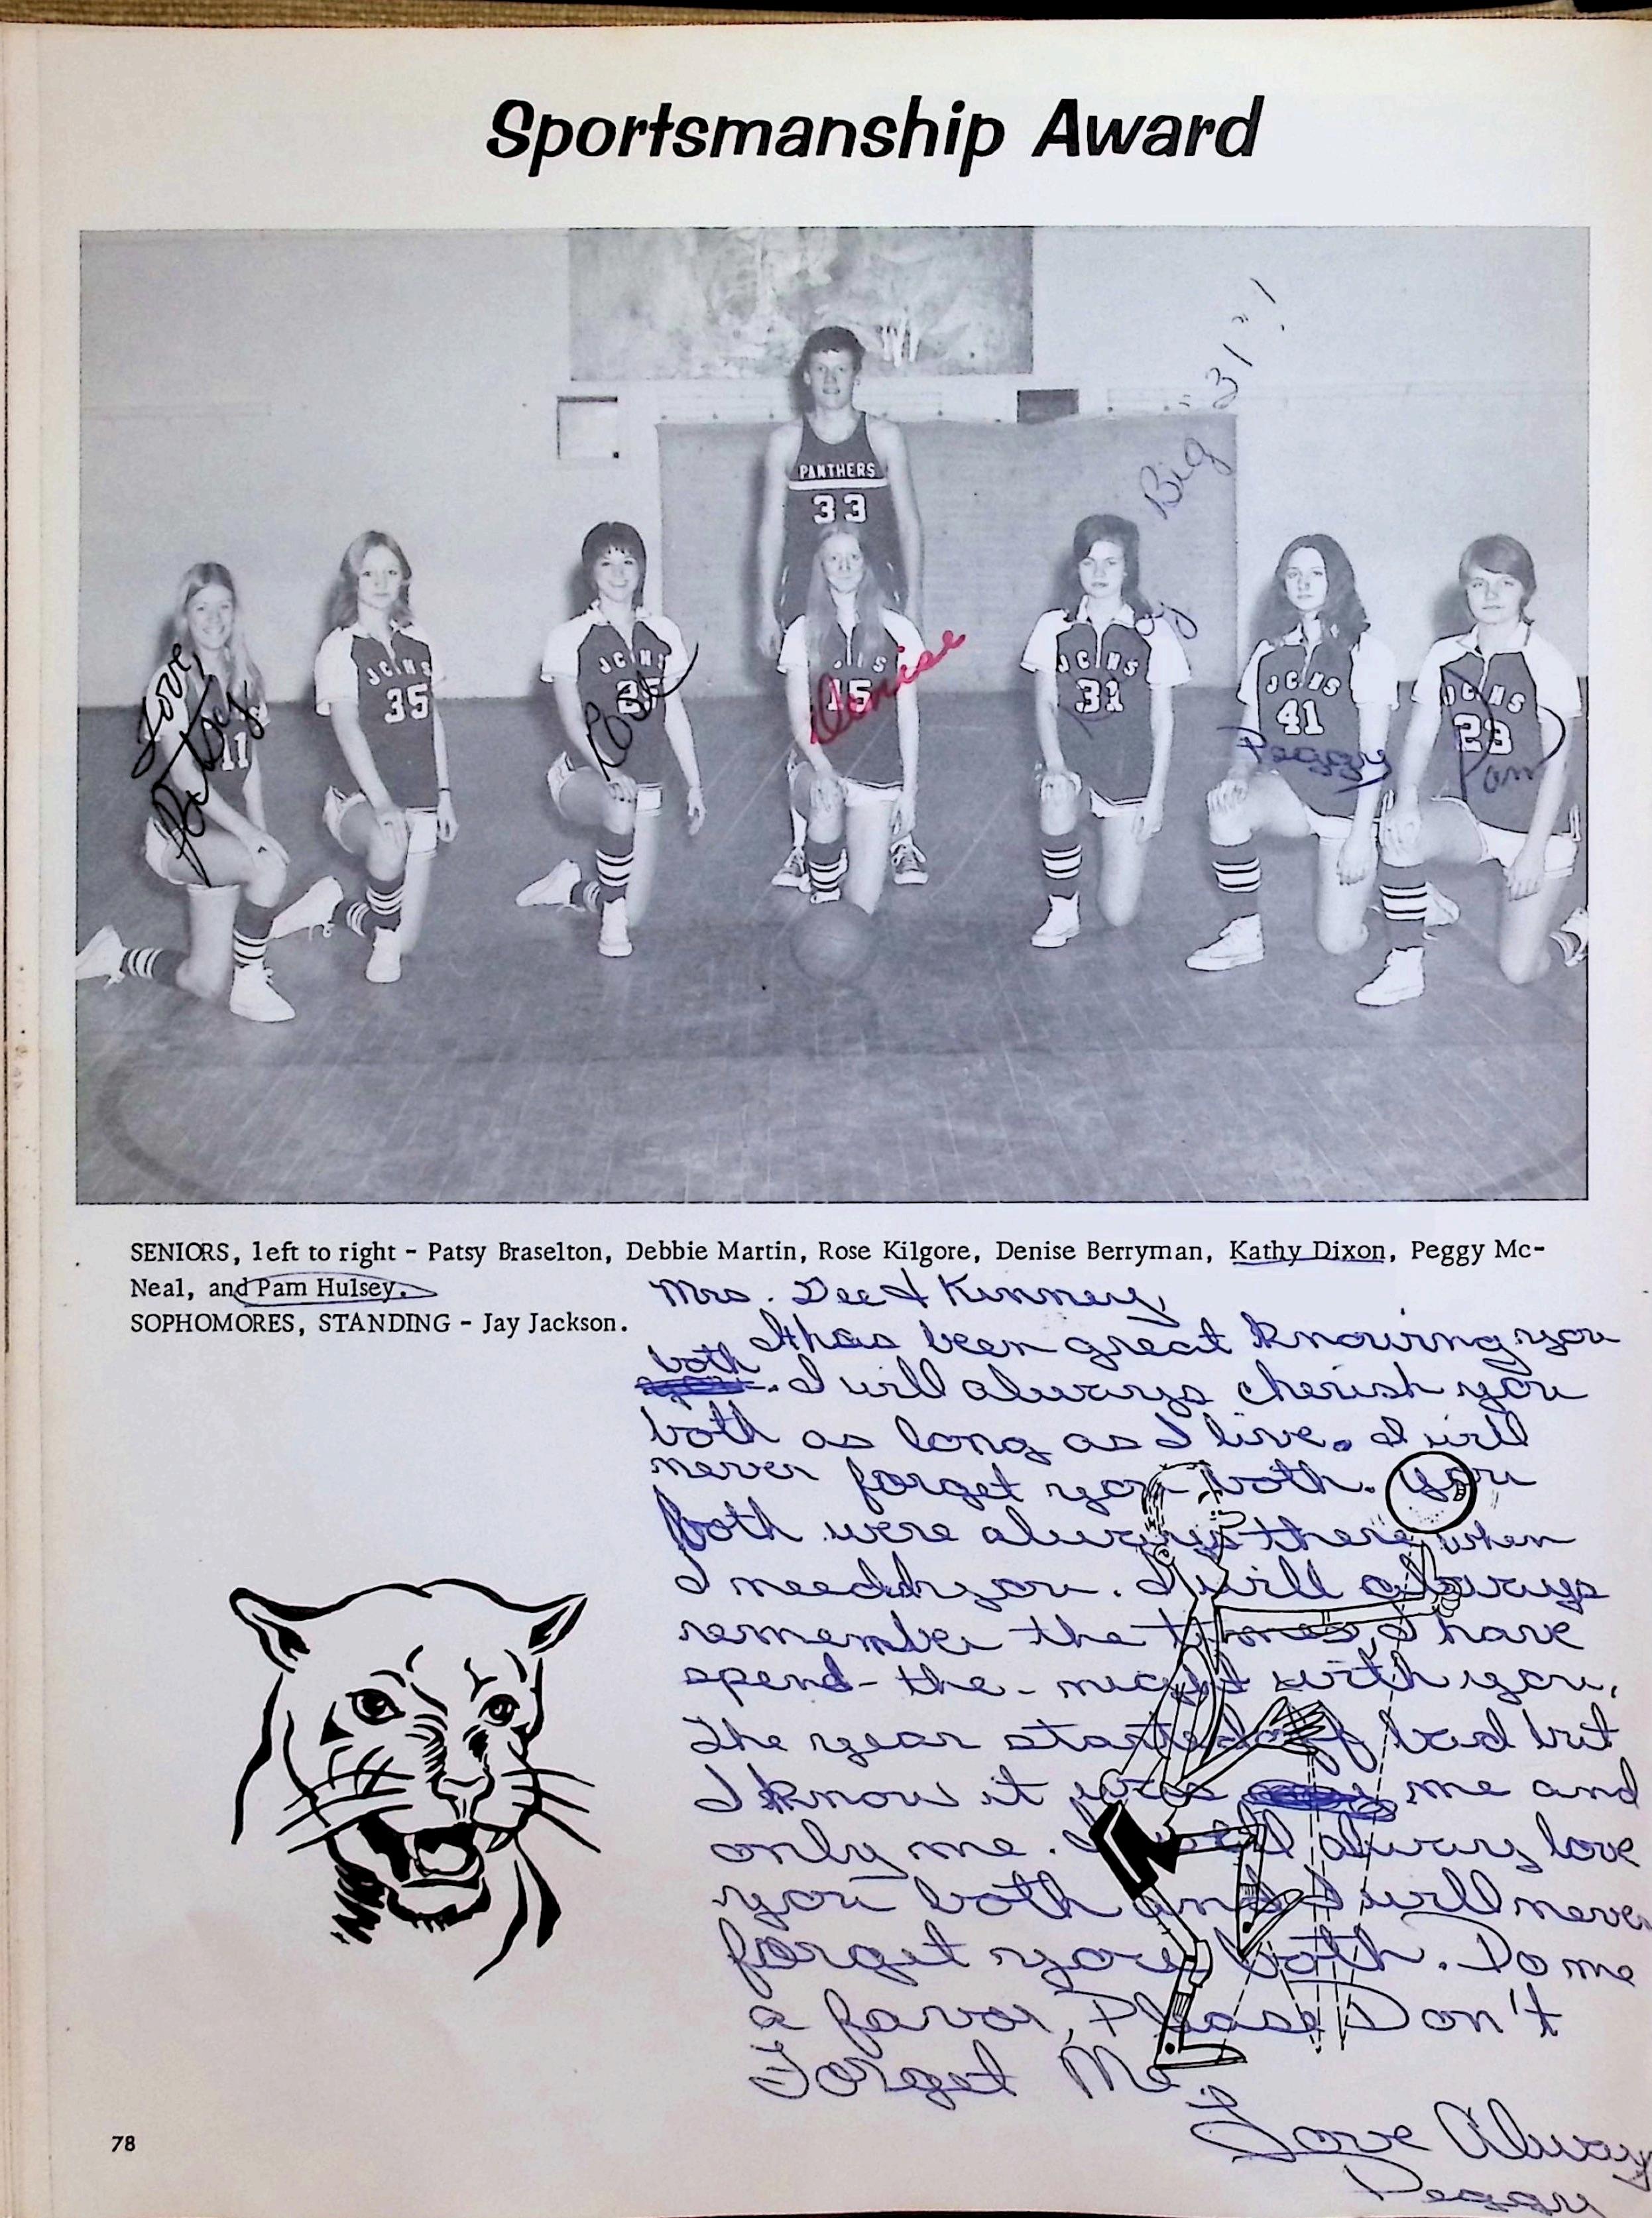 Sportsmanship Award
Big "31"!
PANTHERS
33
Love,
Patsy
11
JCHS
35
Rose
15
Denise
JCHS
31
JCHS
41
Peggy
JCHS
23
Pam
SENIORS, left to right - Patsy Braselton, Debbie Martin, Rose Kilgore, Denise Berryman, Kathy Dixon, Peggy Mc-
Neal, and Pam Hulsey.
SOPHOMORES, STANDING - Jay Jackson.
Mrs. Dee & Kinney,
It has been great knowing you
both. I will always cherish you
both as long as I live. I will
never forget you both. You
both were always there when
I need you. I will always
remember the times I have
spend-the-night with you.
The year started off bad but
I know it was me and
only me. I will always love
you both and I will never
forget you both. Do me
a favor, Please Don't
Forget Me.
Love Always
Peggy
78